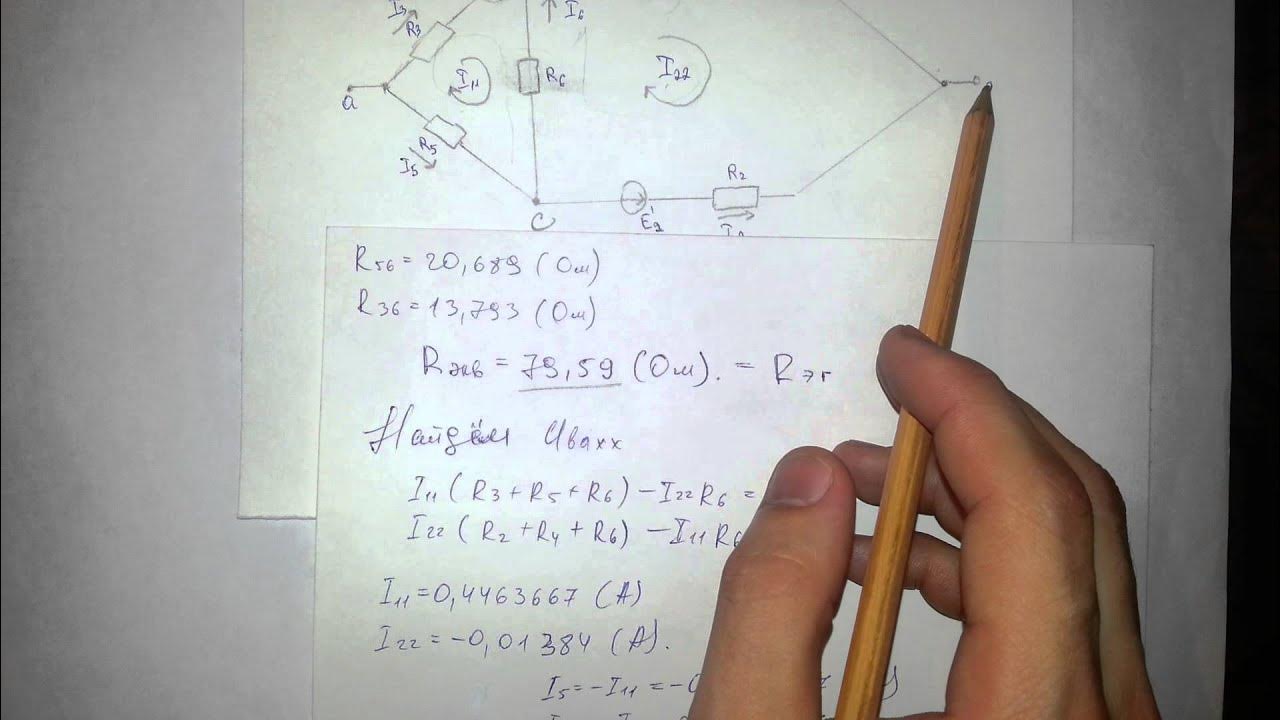 I3
R3
I6
I11
R6
I22
a
R5
I5
R2
C
E2
R56 = 20,689 (Ом)
R36 = 13,793 (Ом)
Rэкв = 79,59 (Ом). = Rэг
Найдём Uваxx
I11 (R3 + R5 + R6) – I22 R6 =
I22 (R2 + R4 + R6) – I11 R6
I11 = 0,4463667 (A)
I22 = -0,01384 (A).
I5 = -I11 = -0